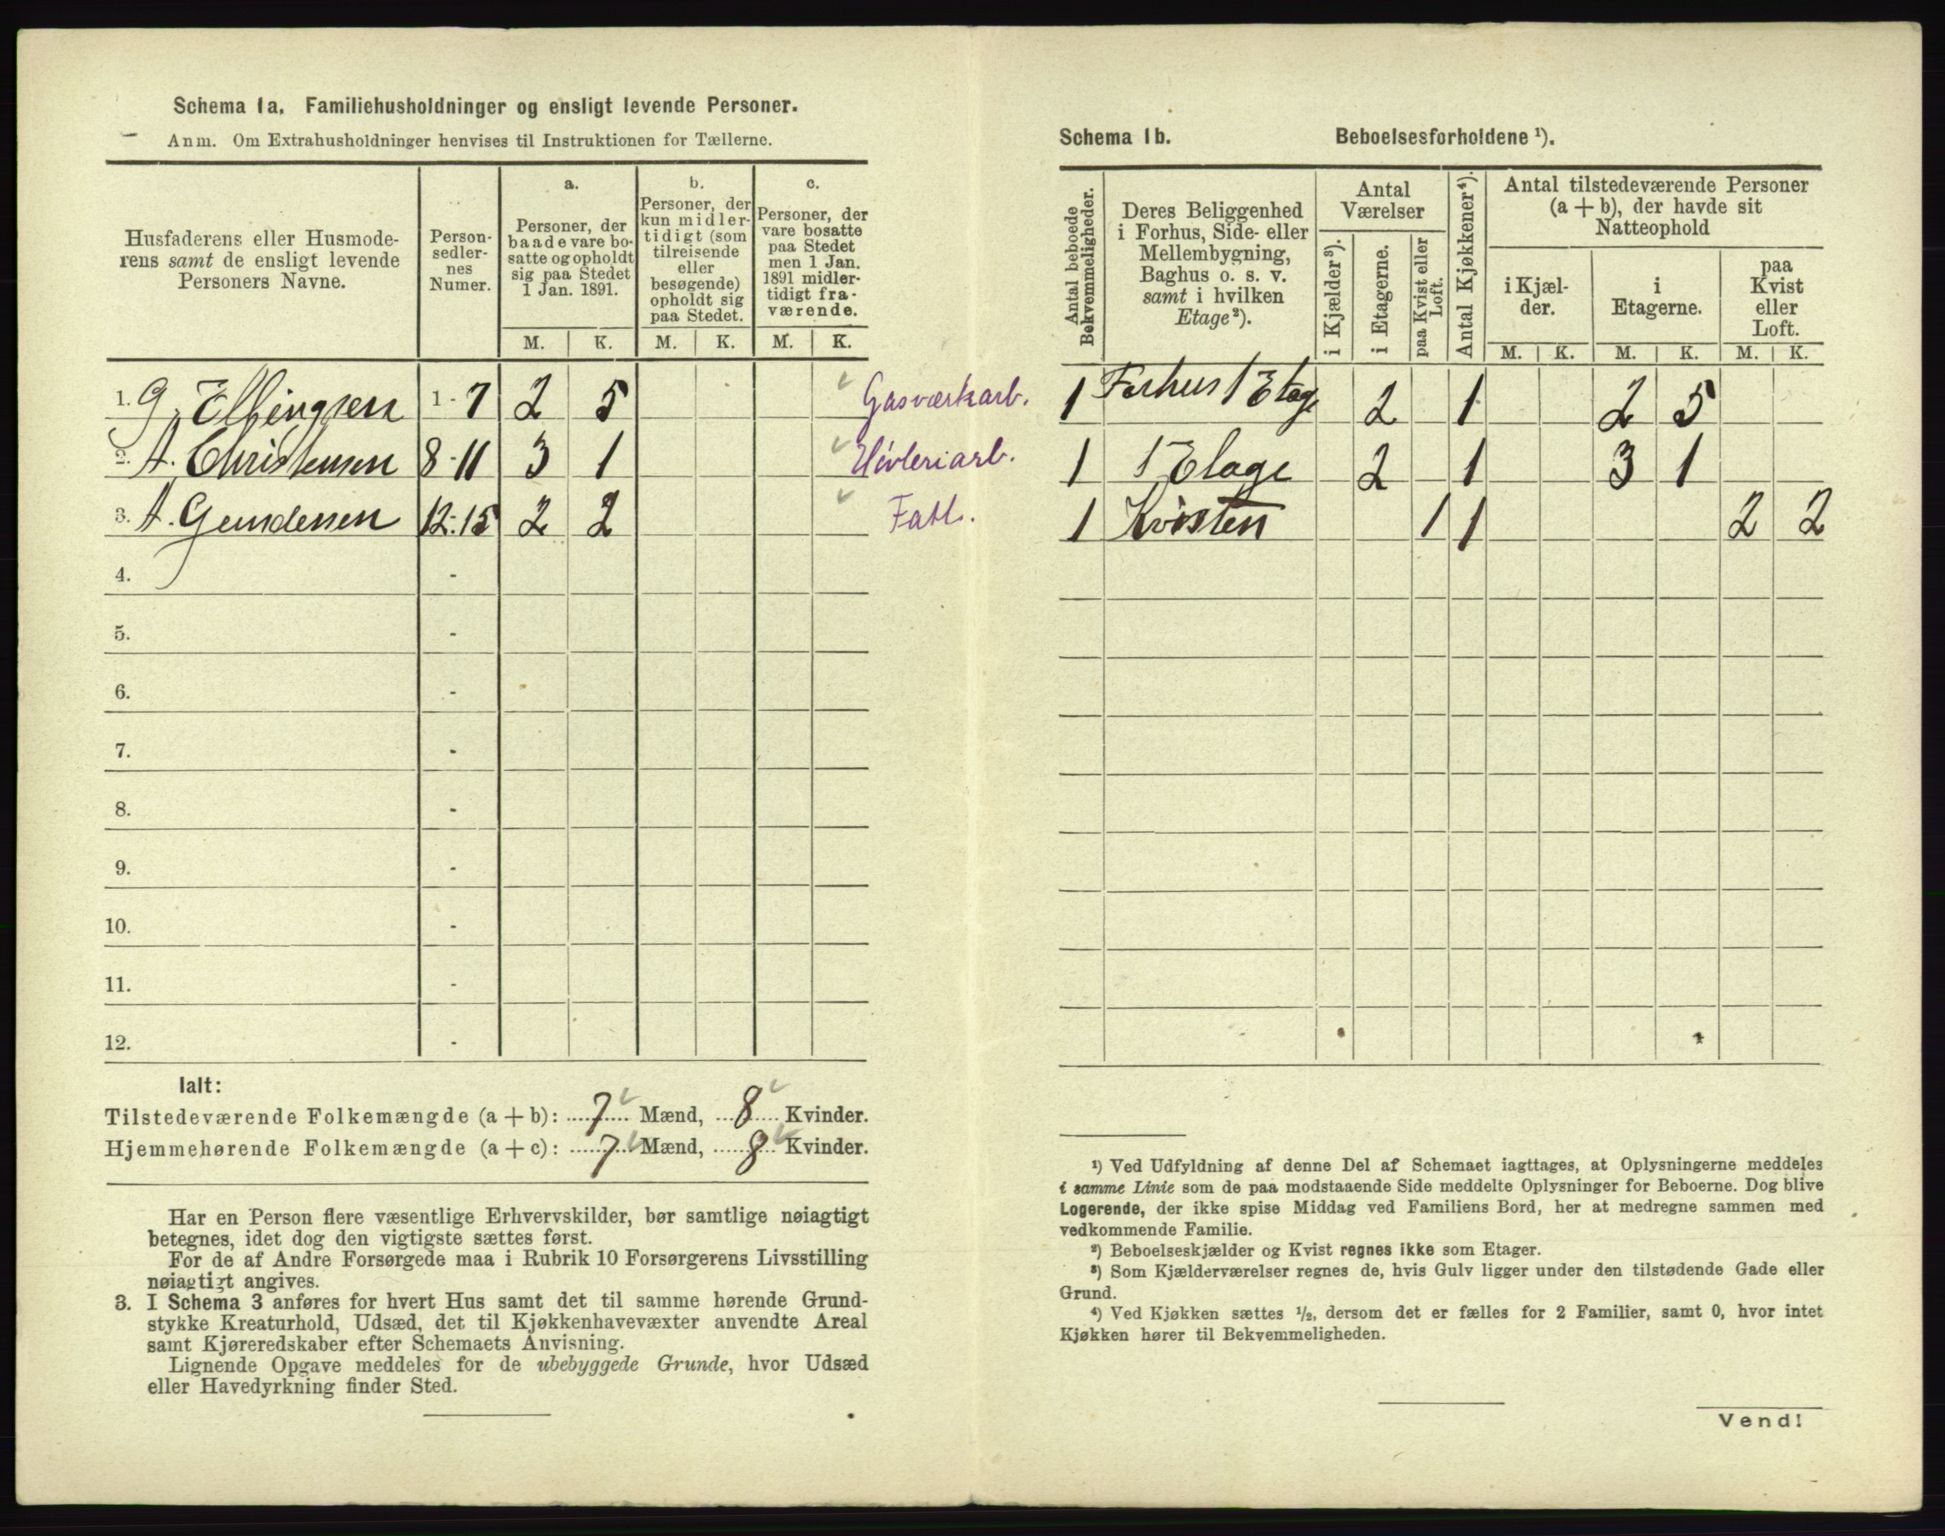 Schema 1a. Familiehusholdninger og ensligt levende Personer.
Anm. Om Extrahusholdninger henvises til Instruktionen for Tællerne.
Husfaderens eller Husmode-
rens samt de ensligt levende
Personers Navne.
Person-
sedler-
nes
Numer.
a.
Personer, der
baade vare bo-
satte og opholdt
sig paa Stedet
1 Jan. 1891.
b.
Personer, der
kun midler-
tidigt (som
tilreisende
eller
besøgende)
opholdt sig
paa Stedet.
c.
Personer, der
vare bosatte
paa Stedet
men 1 Jan.
1891 midler-
tidigt fra-
værende.
M. K. M. K. M. K.
1. G. Ellingsen 1-7 2 5 Gasværkarb.
2. A. Christensen 8-11 3 1 Høvleriarb.
3. A. Gundersen 12-15 2 2 Fatt.
4. -
5. -
6. -
7. -
8. -
9. -
10. -
11. -
12. -
Ialt:
Tilstedeværende Folkemængde (a + b): 7 Mænd, 8 Kvinder.
Hjemmehørende Folkemængde (a + c): 7 Mænd, 8 Kvinder.
Har en Person flere væsentlige Erhvervskilder, bør samtlige nøiagtigt
betegnes, idet dog den vigtigste sættes først.
For de af Andre Forsørgede maa i Rubrik 10 Forsørgerens Livsstilling
nøiagtigt angives.
3. I Schema 3 anføres for hvert Hus samt det til samme hørende Grund-
stykke Kreaturhold, Udsæd, det til Kjøkkenhavevæxter anvendte Areal
samt Kjøreredskaber efter Schemaets Anvisning.
Lignende Opgave meddeles for de ubebyggede Grunde, hvor Udsæd
eller Havedyrkning finder Sted.
Schema 1b. Beboelsesforholdene ¹).
Antal beboede
Bekvemmeligheder.
Deres Beliggenhed
i Forhus, Side- eller
Mellembygning,
Baghus o. s. v.
samt i hvilken
Etage²).
Antal
Værelser
i Kjælder³).
i Etagerne.
paa Kvist eller
Loft.
Antal Kjøkkener⁴).
Antal tilstedeværende Personer
(a + b), der havde sit
Natteophold
i Kjæl-
der.
i
Etagerne.
paa
Kvist
eller
Loft.
M. K. M. K. M. K.
1 Forhus 1 Etage 2 1 2 5
1 1 Etage 2 1 3 1
1 Kvisten 1 1 2 2
¹) Ved Udfyldning af denne Del af Schemaet iagttages, at Oplysningerne meddeles
i samme Linie som de paa modstaaende Side meddelte Oplysninger for Beboerne. Dog blive
Logerende, der ikke spise Middag ved Familiens Bord, her at medregne sammen med
vedkommende Familie.
²) Beboelseskjælder og Kvist regnes ikke som Etager.
³) Som Kjælderværelser regnes de, hvis Gulv ligger under den tilstødende Gade eller
Grund.
⁴) Ved Kjøkken sættes ½, dersom det er fælles for 2 Familier, samt 0, hvor intet
Kjøkken hører til Bekvemmeligheden.
Vend!